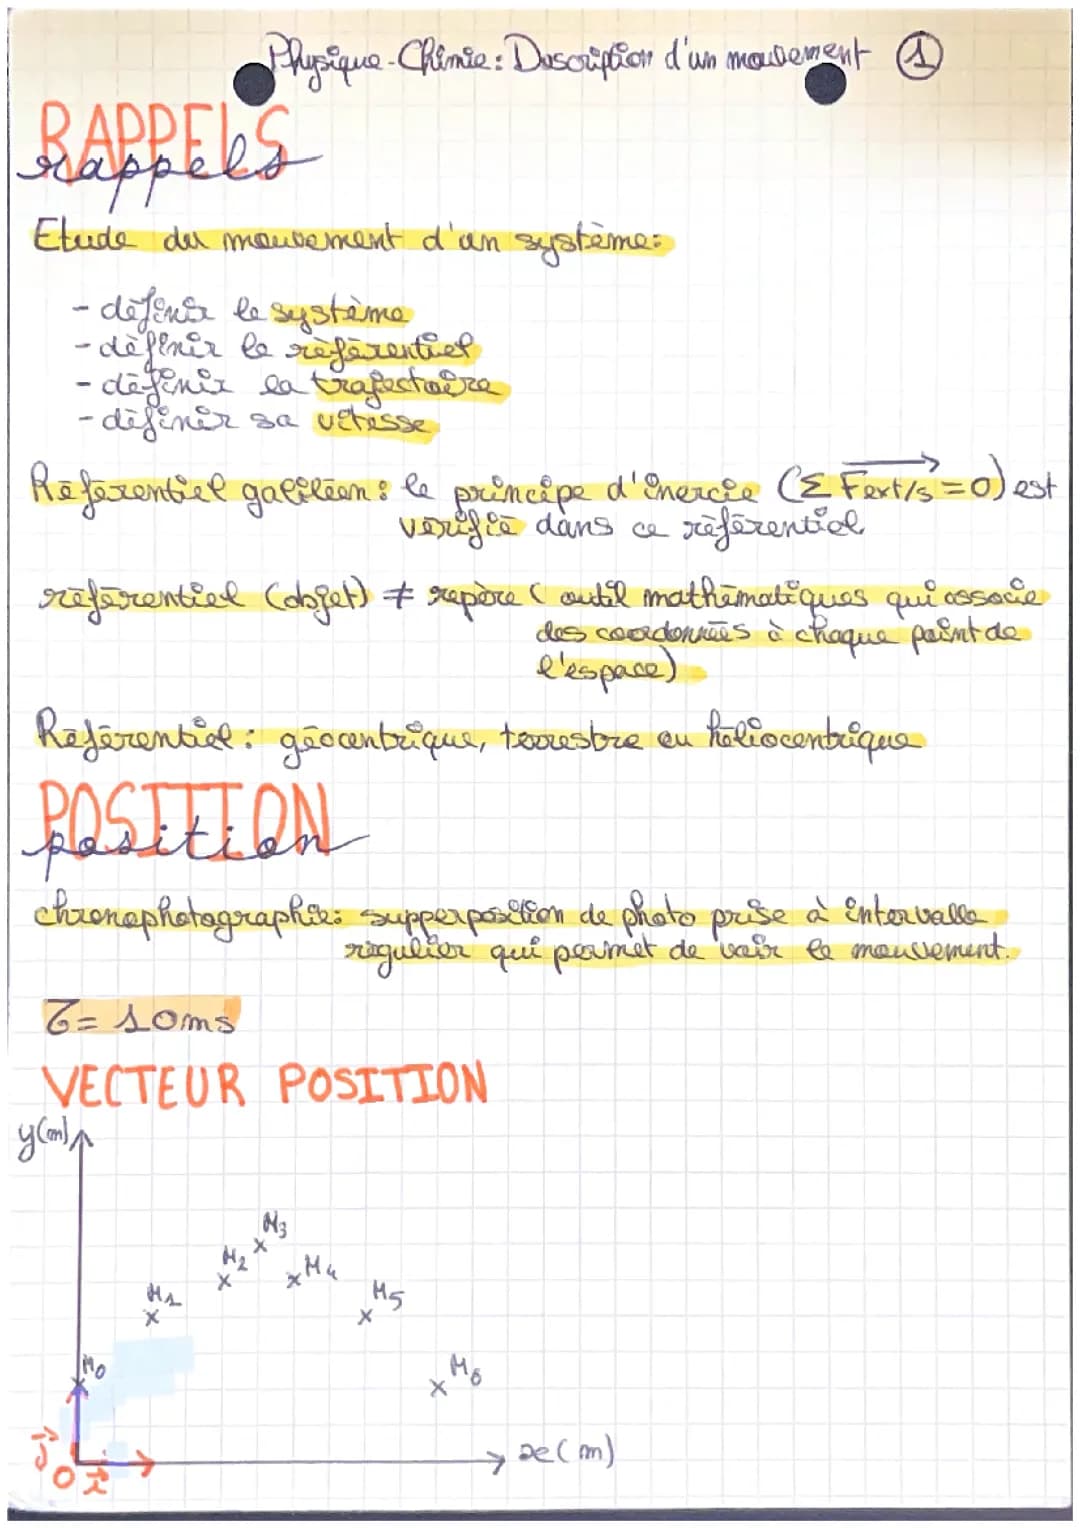 Physique-Chimie: Description d'un mouvement ①
RAPPELS
rappels
Etude du mouvement d'un système:
- définir le système
- définir le référentiel
- définir la trajectoire
- définir sa vitesse
Référentiel galiléen: le principe d'inercie (Σ Fext/s = 0) est
vérifié dans ce référentiel
référentiel (objet) ≠ repère (outil mathématiques qui associe
des coordonnées à chaque point de
l'espace)
Référentiel: géocentrique, terrestre ou héliocentrique
POSITION
position
chronophotographie: supperposition de photo prise à intervalle
régulier qui permet de voir le mouvement.
τ = 10ms
VECTEUR POSITION
y(m)
M3
M2
M4
M1
M5
M0
M6
j
O i
x(m)